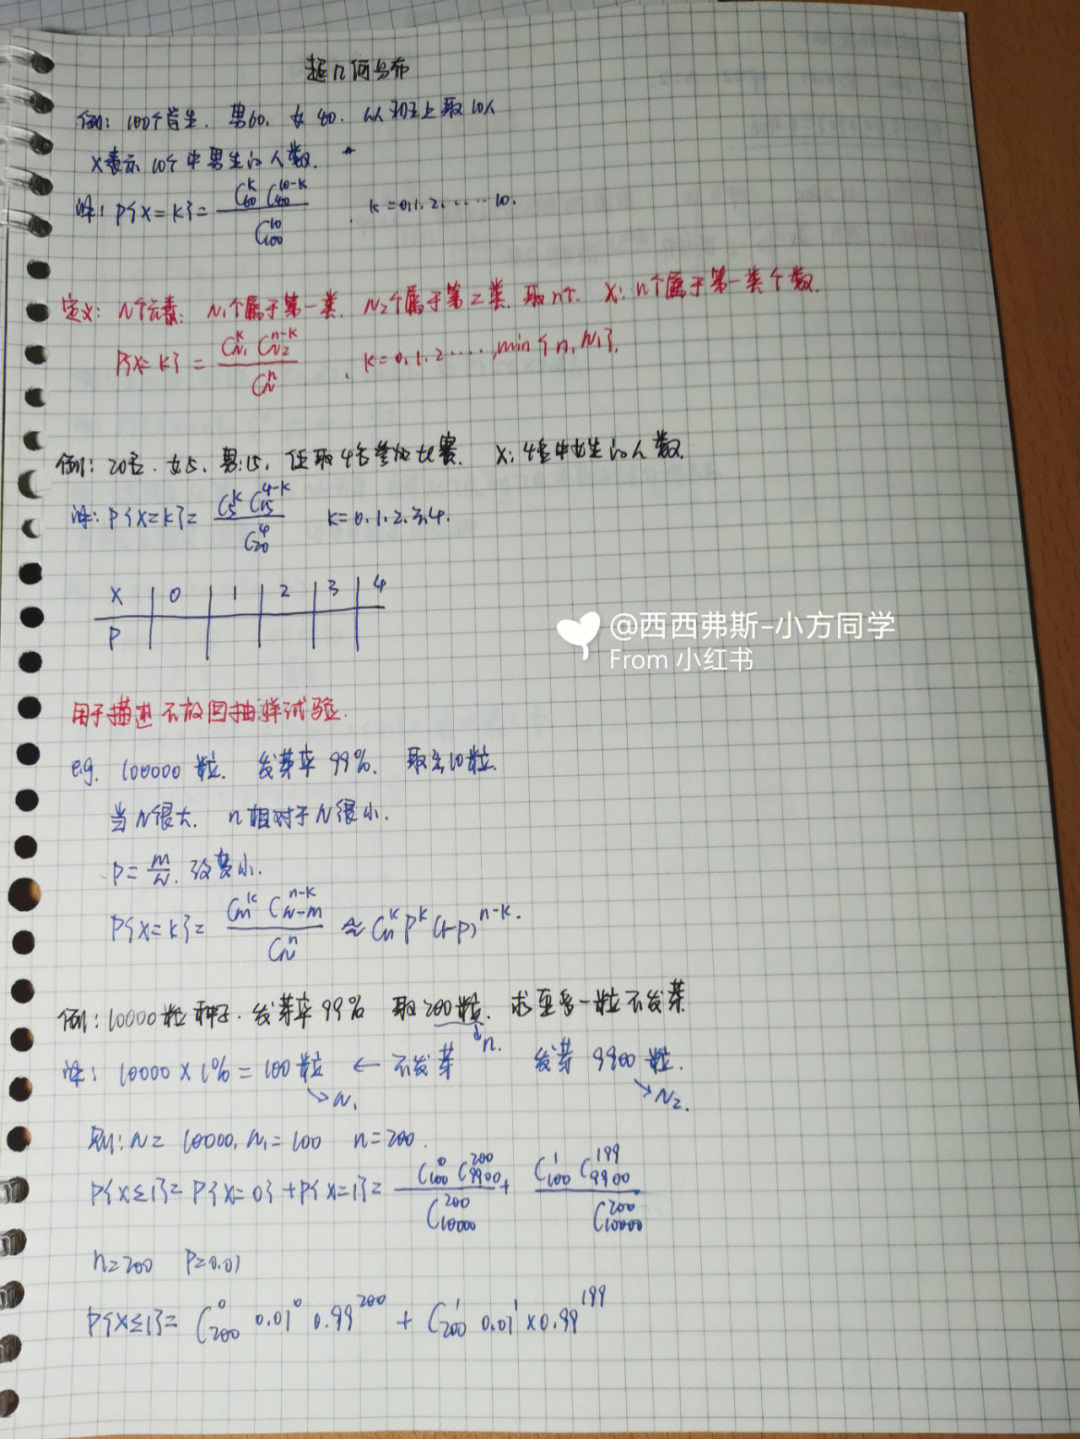 超几何分布
例: 100个学生. 男60. 女40. 从和上取10人
X表示10个中男生的人数.
解: P{X=k}= C₆₀ᵏ C₄₀¹⁰⁻ᵏ / C₁₀₀¹⁰ . k=0.1.2.……10.
定义: N个元素. N₁个属于第一类. N₂个属于第二类. 取n个. X: n个属于第一类个数.
P{X=k}= C_N₁ᵏ C_N₂ⁿ⁻ᵏ / C_Nⁿ . k=0.1.2……,min{n,N₁}.
例: 20名. 女5. 男:15, 任取4名参加比赛. X: 4名中女生的人数.
解: P{X=k}= C₅ᵏ C₁₅⁴⁻ᵏ / C₂₀⁴ k=0.1.2.3.4.
X 0 1 2 3 4
P
@西西弗斯-小方同学
From 小红书
用于描述不放回抽样试验.
e.g. 100000粒. 发芽率99%. 取出10粒.
当N很大. n相对于N很小.
P= M/N. 改变小.
P{X=k}= C_Mᵏ C_N-Mⁿ⁻ᵏ / C_Nⁿ ≈ Cₙᵏ Pᵏ (1-P)ⁿ⁻ᵏ.
例: 10000粒种子. 发芽率99% 取200粒. 求至多一粒不发芽
n.
解: 10000×1%=100粒 ← 不发芽 发芽9900粒.
N₁ N₂.
则: N= 10000, N₁=100 n=200.
P{X≤1}=P{X=0}+P{X=1}= C₁₀₀⁰ C₉₉₀₀²⁰⁰ / C₁₀₀₀₀²⁰⁰ + C₁₀₀¹ C₉₉₀₀¹⁹⁹ / C₁₀₀₀₀²⁰⁰
n=200 P=0.01
P{X≤1}= C₂₀₀⁰ 0.01⁰ 0.99²⁰⁰ + C₂₀₀¹ 0.01¹ ×0.99¹⁹⁹